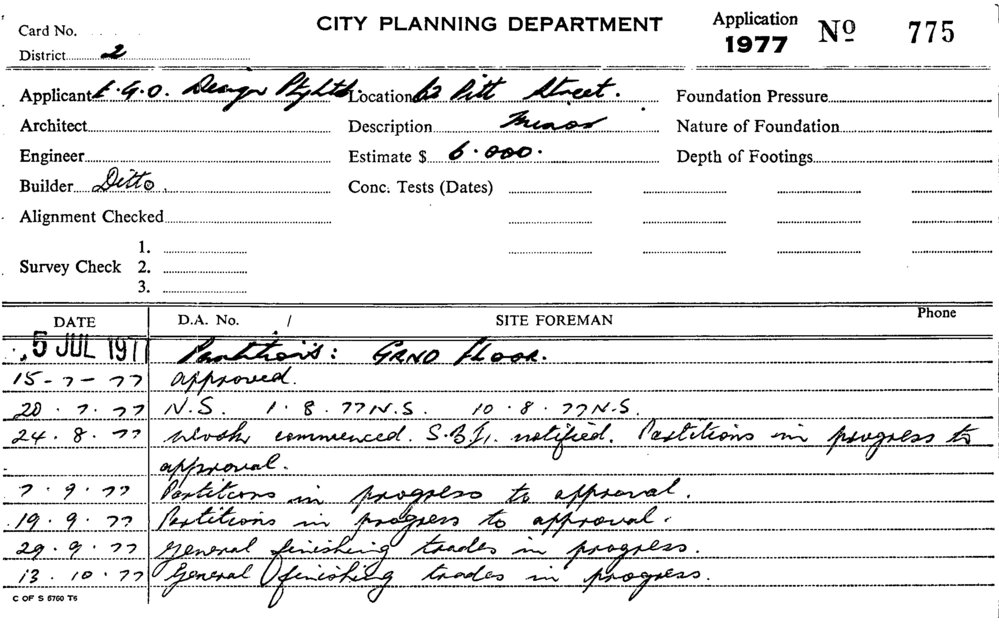 Card No.
CITY PLANNING DEPARTMENT
Application
1977
Nº 775
District 2
Applicant E.G.O. Design Pty Ltd
Location 62 Pitt Street.
Foundation Pressure
Architect
Description Minor
Nature of Foundation
Engineer
Estimate $ 6.000.
Depth of Footings
Builder Ditto.
Conc. Tests (Dates)
Alignment Checked
Survey Check
1.
2.
3.
DATE
D.A. No. /
SITE FOREMAN
Phone
5 JUL 197 Partitions: GRND FLOOR.
15-7-77 approved.
20.7.77 N.S. 1.8.77 N.S. 10.8.77 N.S.
24.8.77 work commenced. S.B.I. notified. Partitions in progress to
approval.
7.9.77 Partitions in progress to approval.
19.9.77 Partitions in progress to approval.
29.9.77 General finishing trades in progress.
13.10.77 General finishing trades in progress.
C OF S 6760 T6